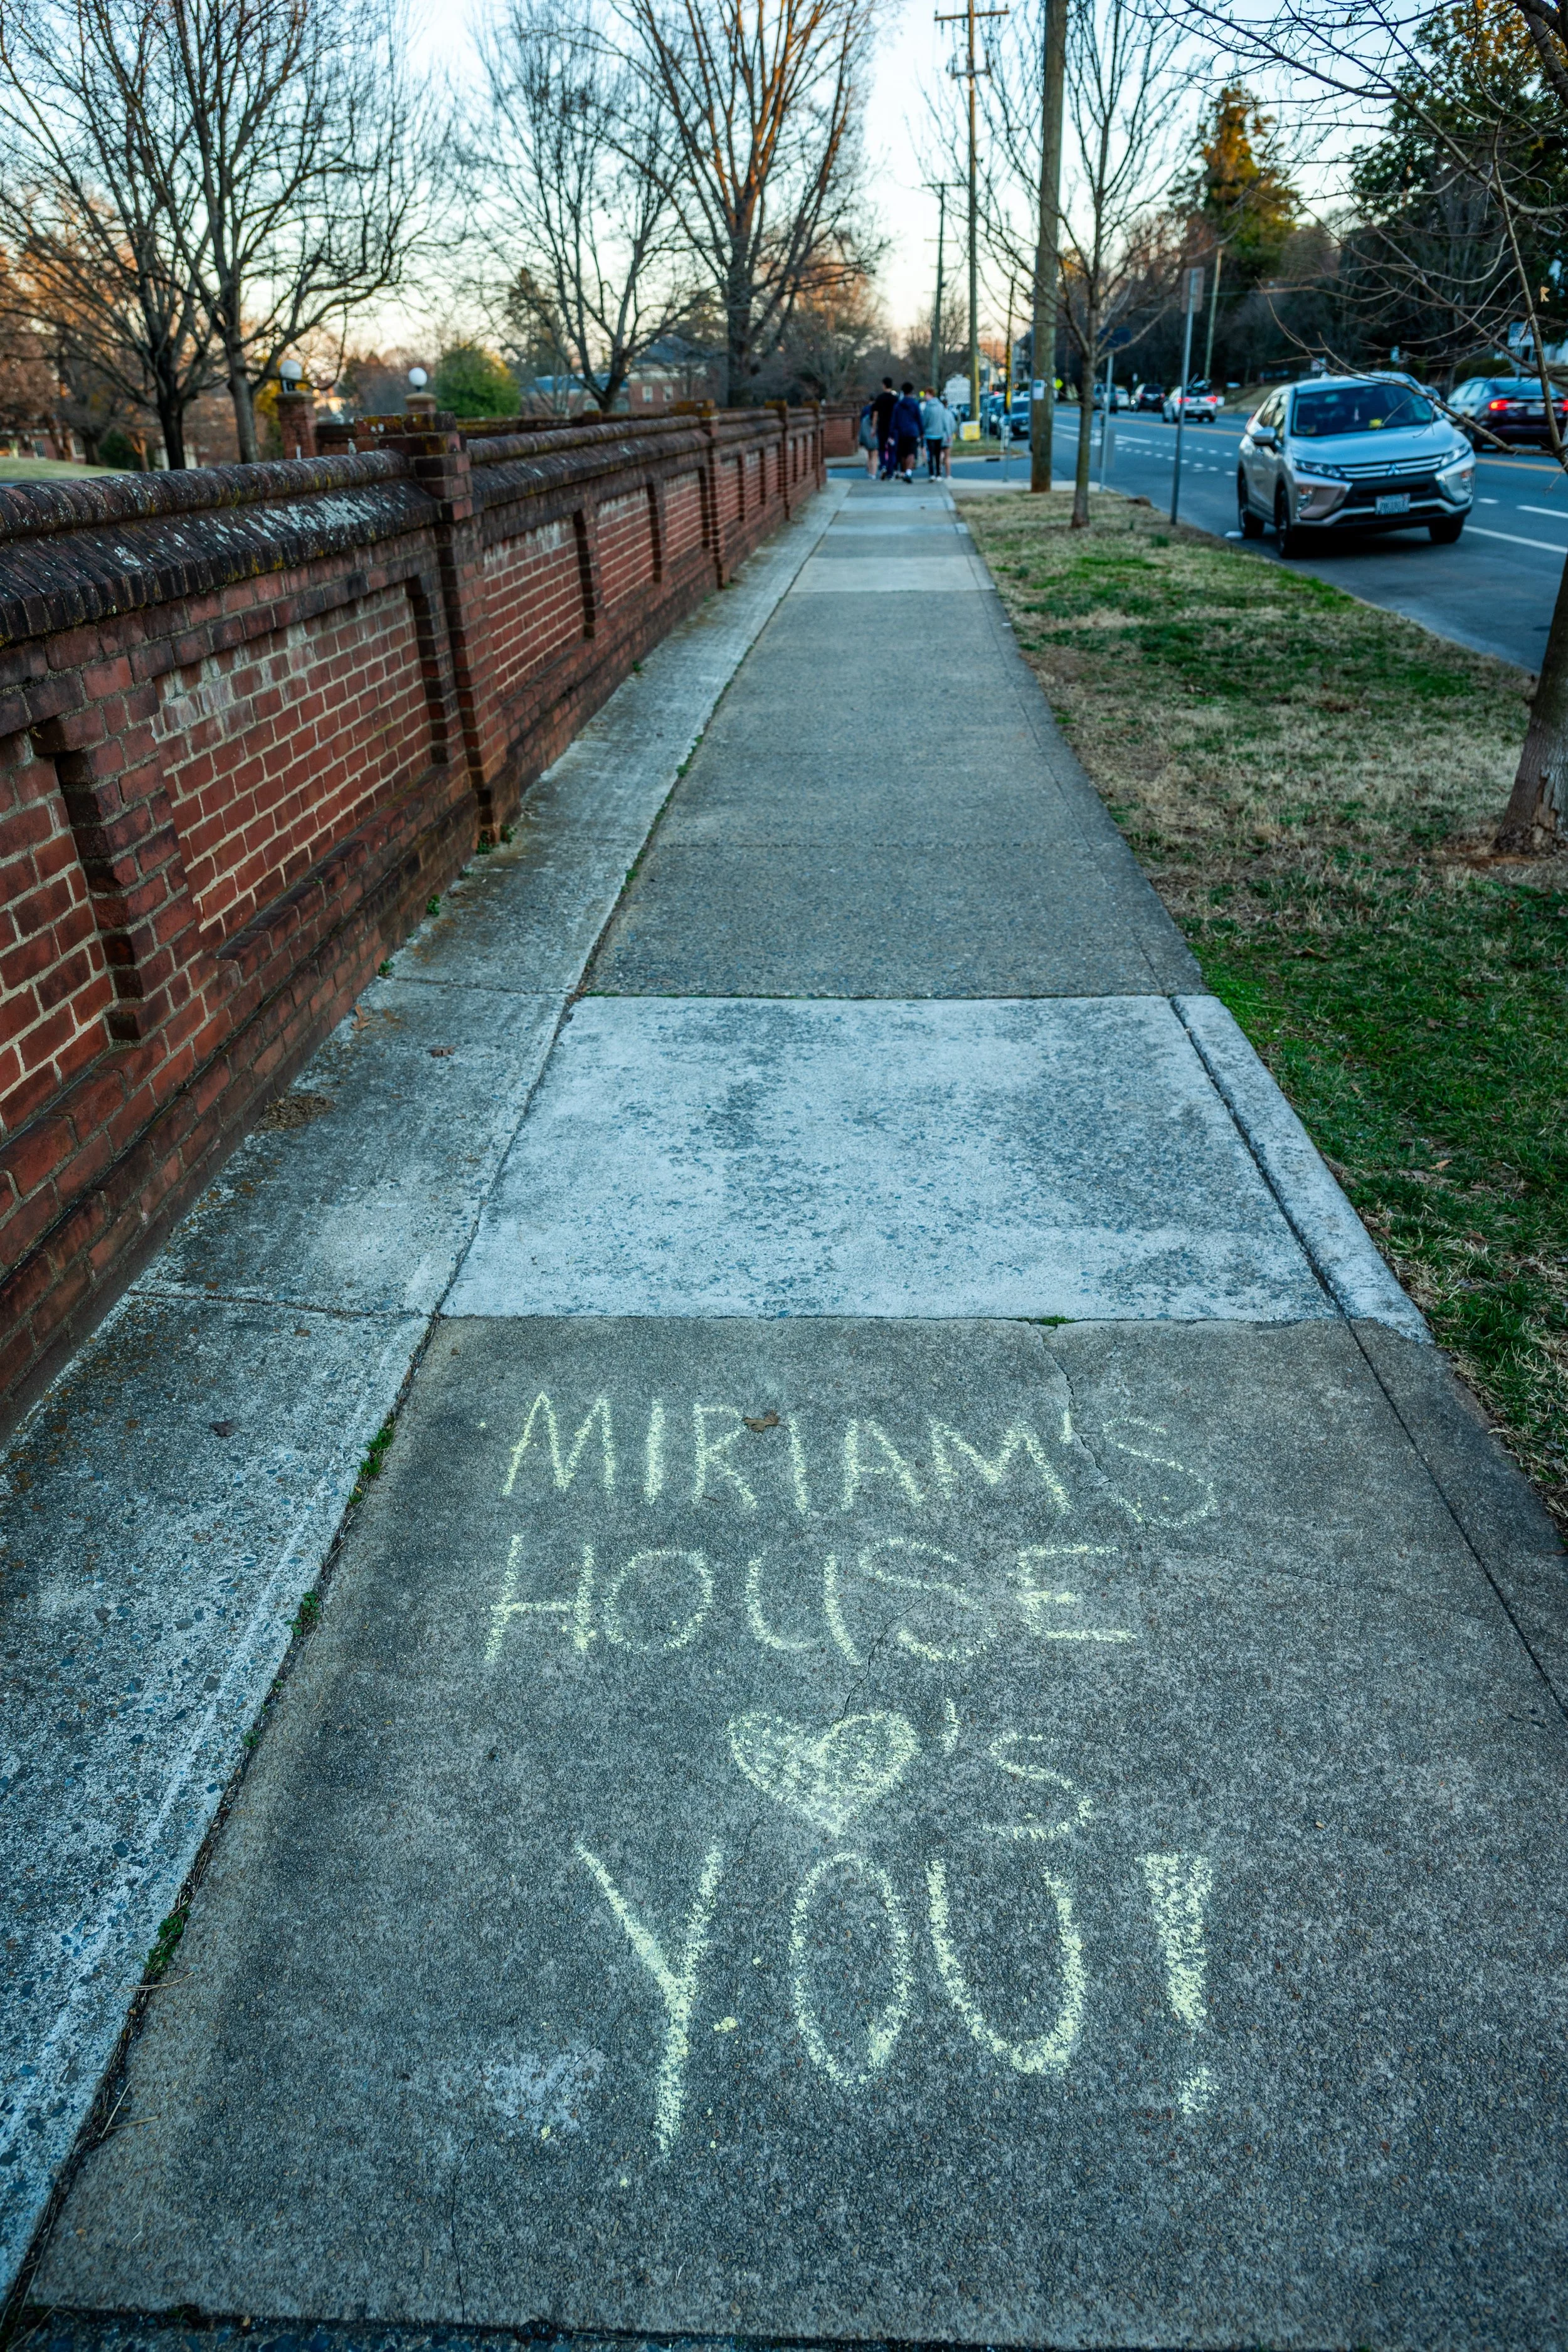 MIRIAM'S
HOUSE
♥'s
YOU!